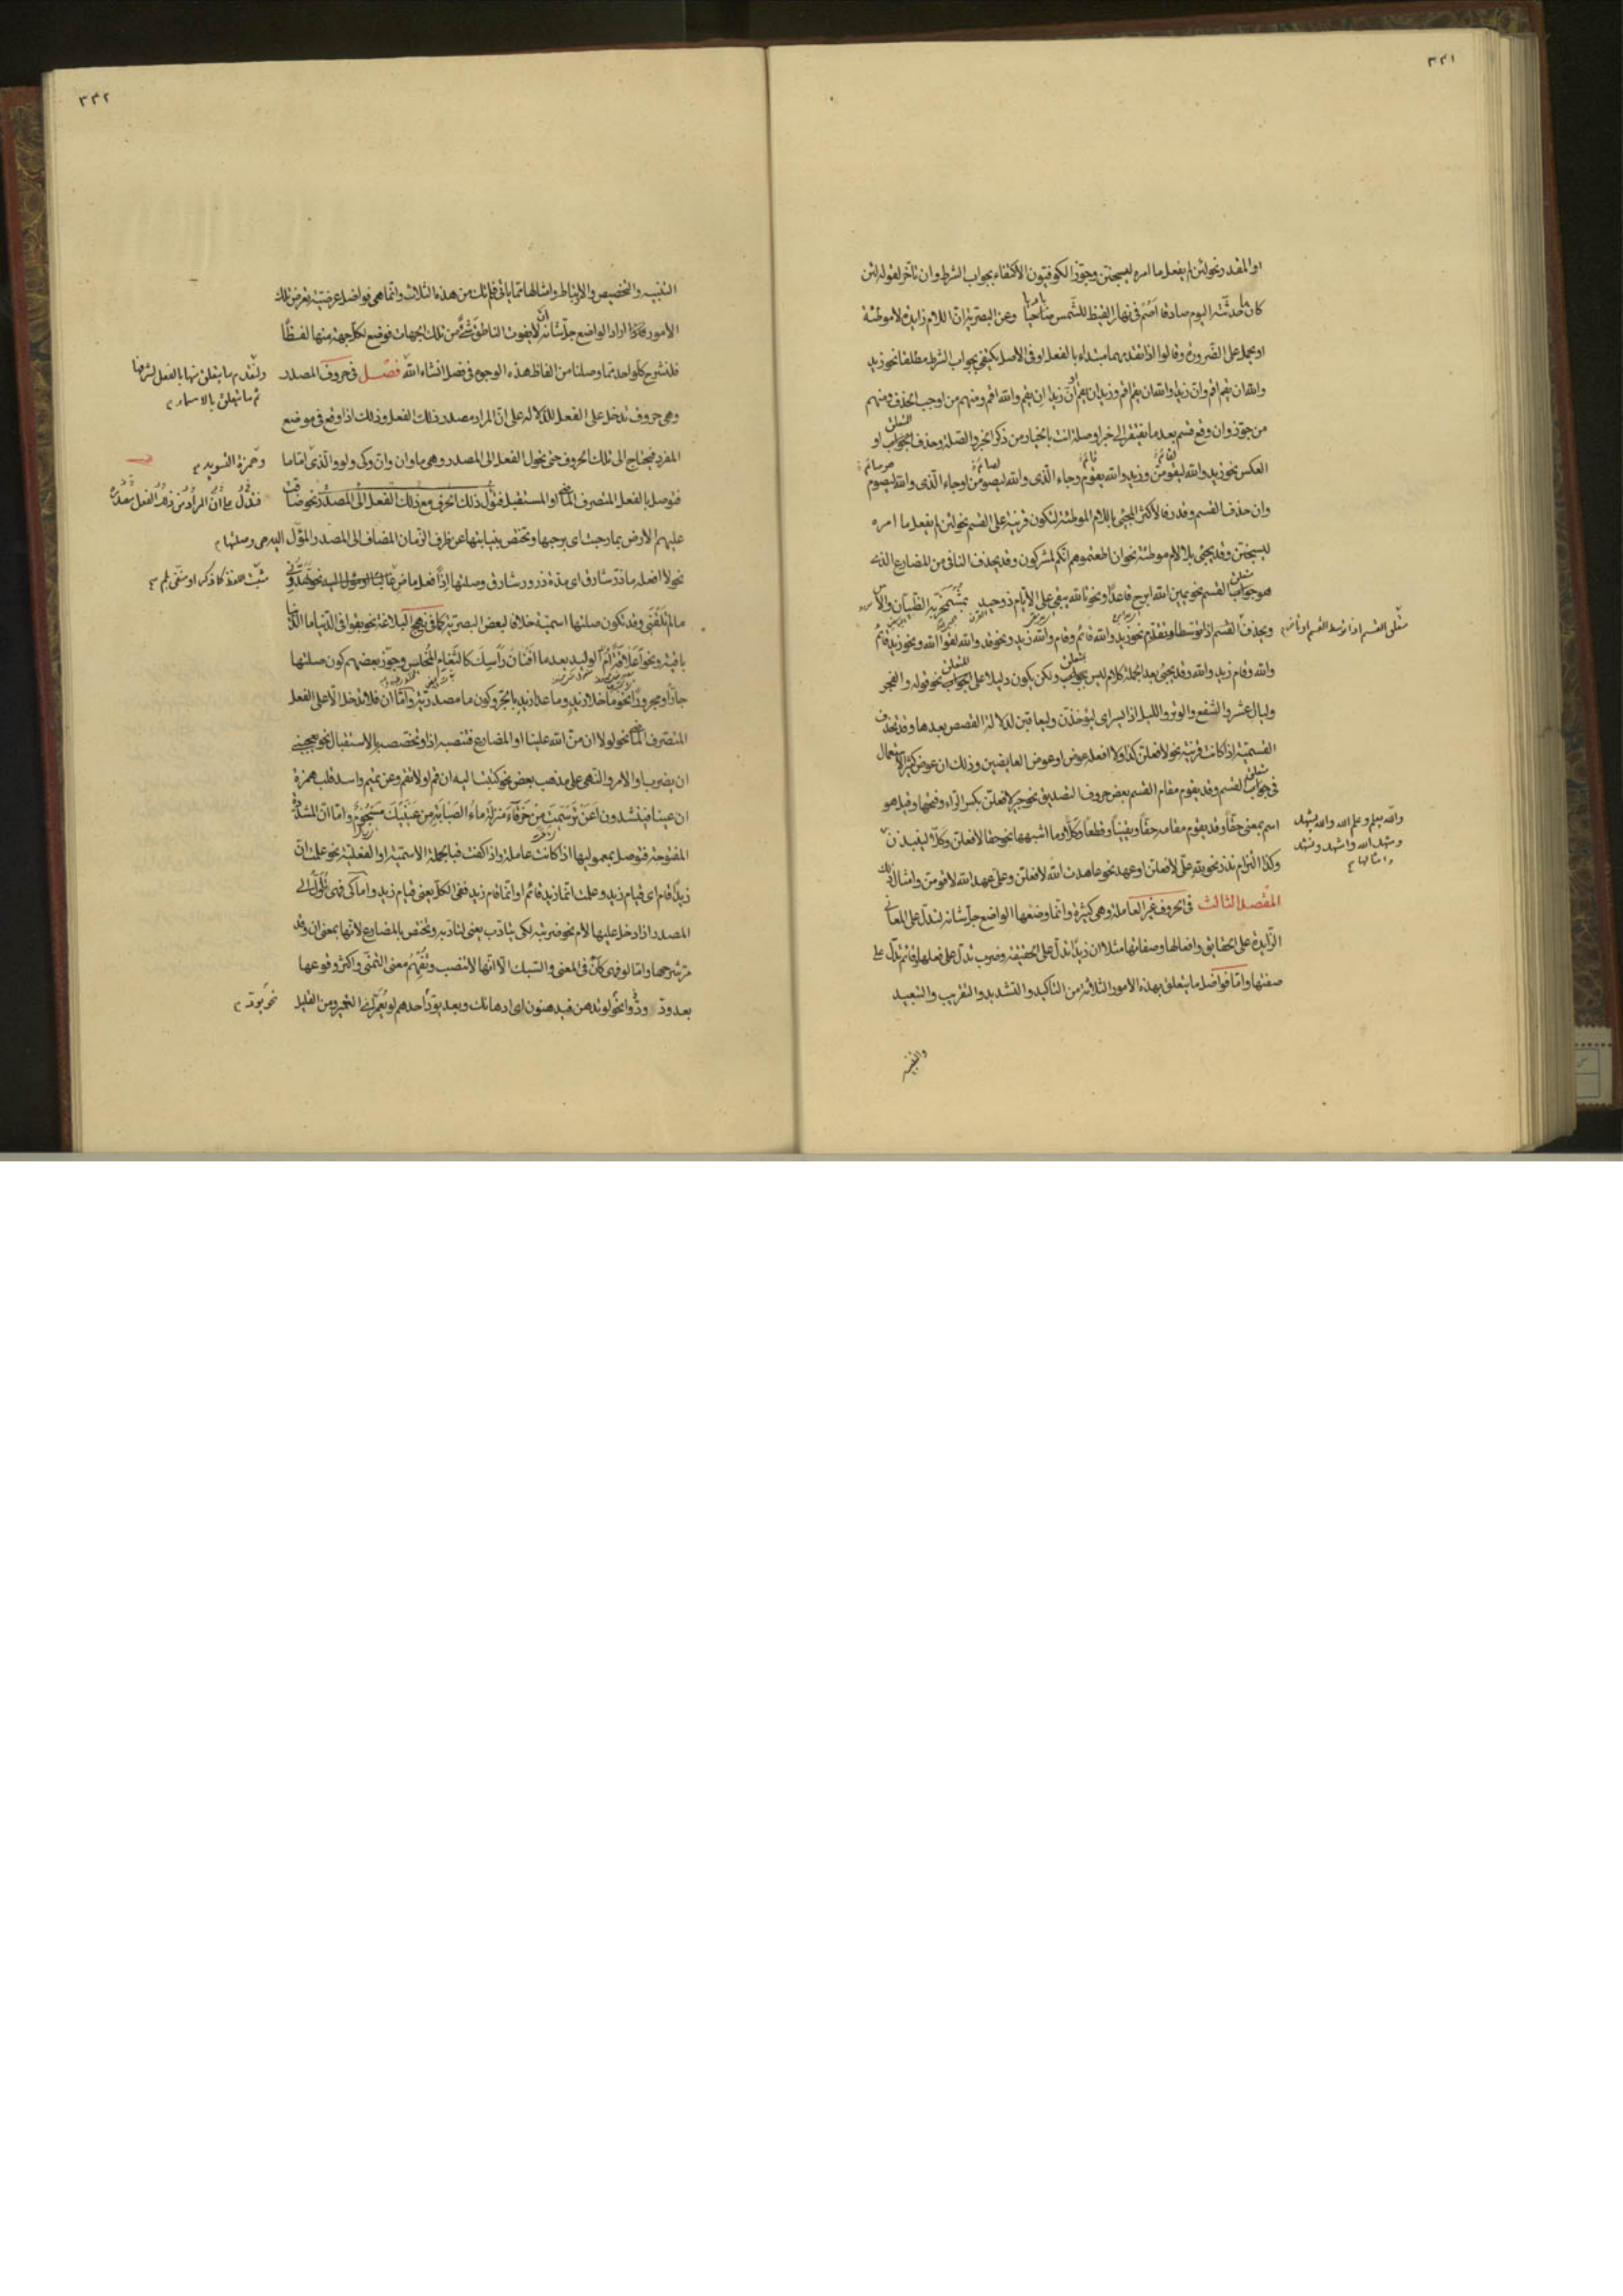 ٣٣١
او المقدر نحو لئن لم يفعل ما امره ليسجنن وجوّز الكوفيون الاكتفاء بجواب الشرط وان تأخر لقوله لئن
كان ما حدثته اليوم صادقا اصم في نهار القيظ للشمس باديا وعن البصرية ان اللام زايدة لا موطئة
او يحمل على الضرورة وقالوا اذا تقدمهما مبتداء بالفعل او في الاصل يكتفي بجواب الشرط مطلقا نحو زيد
والله ان يقم اقم وان زيدا والله ان يقم اقم وزيد ان يقم او ان زيدا ان يقم والله اقم ومنهم من اوجب الحذف ومنهم
من جوّز وان وقع قسم بعد ما يفتقر الى خبر او صلة انت بالخيار من ذكر الخبر والصلة وحذف الجواب او
العكس نحو زيد والله ليقومن وزيد والله يقوم وجاء الذي والله ليصومن او جاء الذي والله يصوم
وان حذف القسم وقدر فالاكثر المجئ باللام الموطئة لتكون قرينة على القسم نحو لئن لم يفعل ما امره
ليسجنن وقد يجئ بلا لام موطئة نحو ان اطعتموهم انكم لمشركون وقد يحذف النافي من المضارع الذي
هو جواب القسم نحو يمين الله ابرح قاعدا ونحو تالله يبقى على الايام ذو حيد بمشمخر به الظيان والآس
ويحذف القسم اذا توسط او تقدم نحو زيد والله قائم وقام والله زيد ونحو قد والله لقوا الله ونحو زيد قائم
والله وقام زيد والله وقد يجئ بعد الجملة كلام ليس بجواب ولكن يكون دليلا على الجواب نحو قوله والفجر
وليال عشر والشفع والوتر والليل اذا يسر اي ليؤخذن وليعاقبن لدلالة القصص بعدها وقد تحذف
القسمية اذا كانت قرينة نحو لافعلن كذا ولا افعله عوض او عوض العايضين وذلك ان عوض كثير الاستعمال
في جواب القسم وقد يقوم مقام القسم بعض حروف التصديق نحو جير لافعلن بكسر الراء وفتحها وقيل هو
اسم بمعنى حقا وقد يقوم مقامه حقا ويقينا وقطعا وكلا وما اشبهها نحو حقا لافعلن وكلا لينبذن
وكذا التزام نذر نحو لله علي لافعلن او عهد نحو عاهدت الله لافعلن وعلى عهد الله لاقومن وامثال ذلك
المفصل الثالث في الحروف غير العاملة وهي كثيرة وانما وضعها الواضع جل شانه لتدل على المعاني
الزايدة على الحقايق وافعالها وصفاتها مثلا ان زيدا تدل على الحقيقة وضرب تدل على فعلها وقائم تدل على
صفتها واما فواضل ما يتعلق بهذه الامور الثلاثة من التاكيد والتشديد والتقريب والتبعيد
والتنبيه
متعلق القسم اذا توسط القسم او تأخر
والله يعلم وعلم الله والله يشهد
وشهد الله واشهد ونشهد
وامثالها
٣٣٢
التنبيه والتخصيص والارتباط وامثالها مما ياتي فلم تك من هذه الثلاث وانما هي فواضل عرضية يعرض تلك
الامور فلذا اراد الواضع جل شانه ان لا يفوت الناطق شئ من تلك الجهات فوضع لكل جهة منها لفظا
فلنشرح كل واحد مما وصلنا من الفاظ هذه الوجوه في فصل انشاء الله فصل في حروف المصدر
وهي حروف تدخل على الفعل للدلالة على ان المراد مصدر ذلك الفعل وذلك اذا وقع في موضع
المفرد فيحتاج الى تلك الحروف حتى يحول الفعل الى المصدر وهي ما وان وانّ وكي ولو والذي اما ما
فتوصل بالفعل المتصرف الماضي او المستقبل فتؤل ذلك الحرف مع ذلك الفعل الى المصدر نحو ضاقت
عليهم الارض بما رحبت اي برحبها وتختص بنيابتها عن ظرف الزمان المضاف الى المصدر المؤل اليه هي وصلتها
نحو لا افعله ما ذر شارق اي مدة ذرور شارق وصلتها اذا فعل ماض
ما لم تلقني وقد تكون صلتها اسمية خلافا لبعض البصرية كما في نهج البلاغة نحو بقوا في الدنيا ما الدنيا
باقية ونحو اعلاقة ام الوليد بعد ما افنان رأسك كالثغام المخلس وجوّز بعضهم كون صلتها
جارا ومجرورا نحو ما خلا زيد وما عدا زيد بالجر وكون ما مصدرية واما ان فلا تدخل الا على الفعل
المتصرف الماضي نحو لولا ان من الله علينا او المضارع فتنصبه اذا وتخصصه بالاستقبال نحو يعجبني
ان يضرب او الامر والنهي على مذهب بعض نحو كتبت اليه ان قم او لا تقم وعن تميم واسد قلب همزة
ان عينا فينشدون اعن ترسمت من خرقاء منزلة ماء الصبابة من عينيك مسجوم واما ان المشددة
المفتوحة فتوصل بمعموليها اذا كانت عاملة واذا كفت فبالجملة الاسمية او الفعلية نحو علمت ان
زيدا قام اي قيام زيد وعلمت انما زيد قائم او انما قام زيد ففي الكل يعني قيام زيد واما كي فهي تؤل الى
المصدر اذا دخل عليها لام نحو ضربته لكي يتادب يعني لتادبه وتختص بالمضارع لانها بمعنى ان وقد
مر شرحها واما لو فهي كان في المعنى والسبك الا انها لا تنصب وتفهم معنى التمنى واكثر وقوعها
بعد ود ودوا نحو لو تدهن فيدهنون اي ادهانك وبعد يود احدهم لو يعمر اي التعمير ومن القليل
ولنقدم ما يتعلق منها بالفعل لشرفها
ثم ما يتعلق بالاسماء
وهمزة التسوية
فتدل على ان المراد من ذلك الفعل مصدره
نحو يود